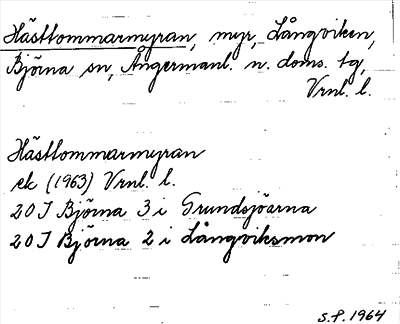 Hästtommarmyran, myr, Långviken,
Björna sn, Ångermanl. n. doms. tg,
Vrnl. l.
Hästtommarmyran
ek (1963) Vrnl. l.
20 I Björna 3 i Grundsjöarna
20 I Björna 2 i Långviksmon
S.P. 1964